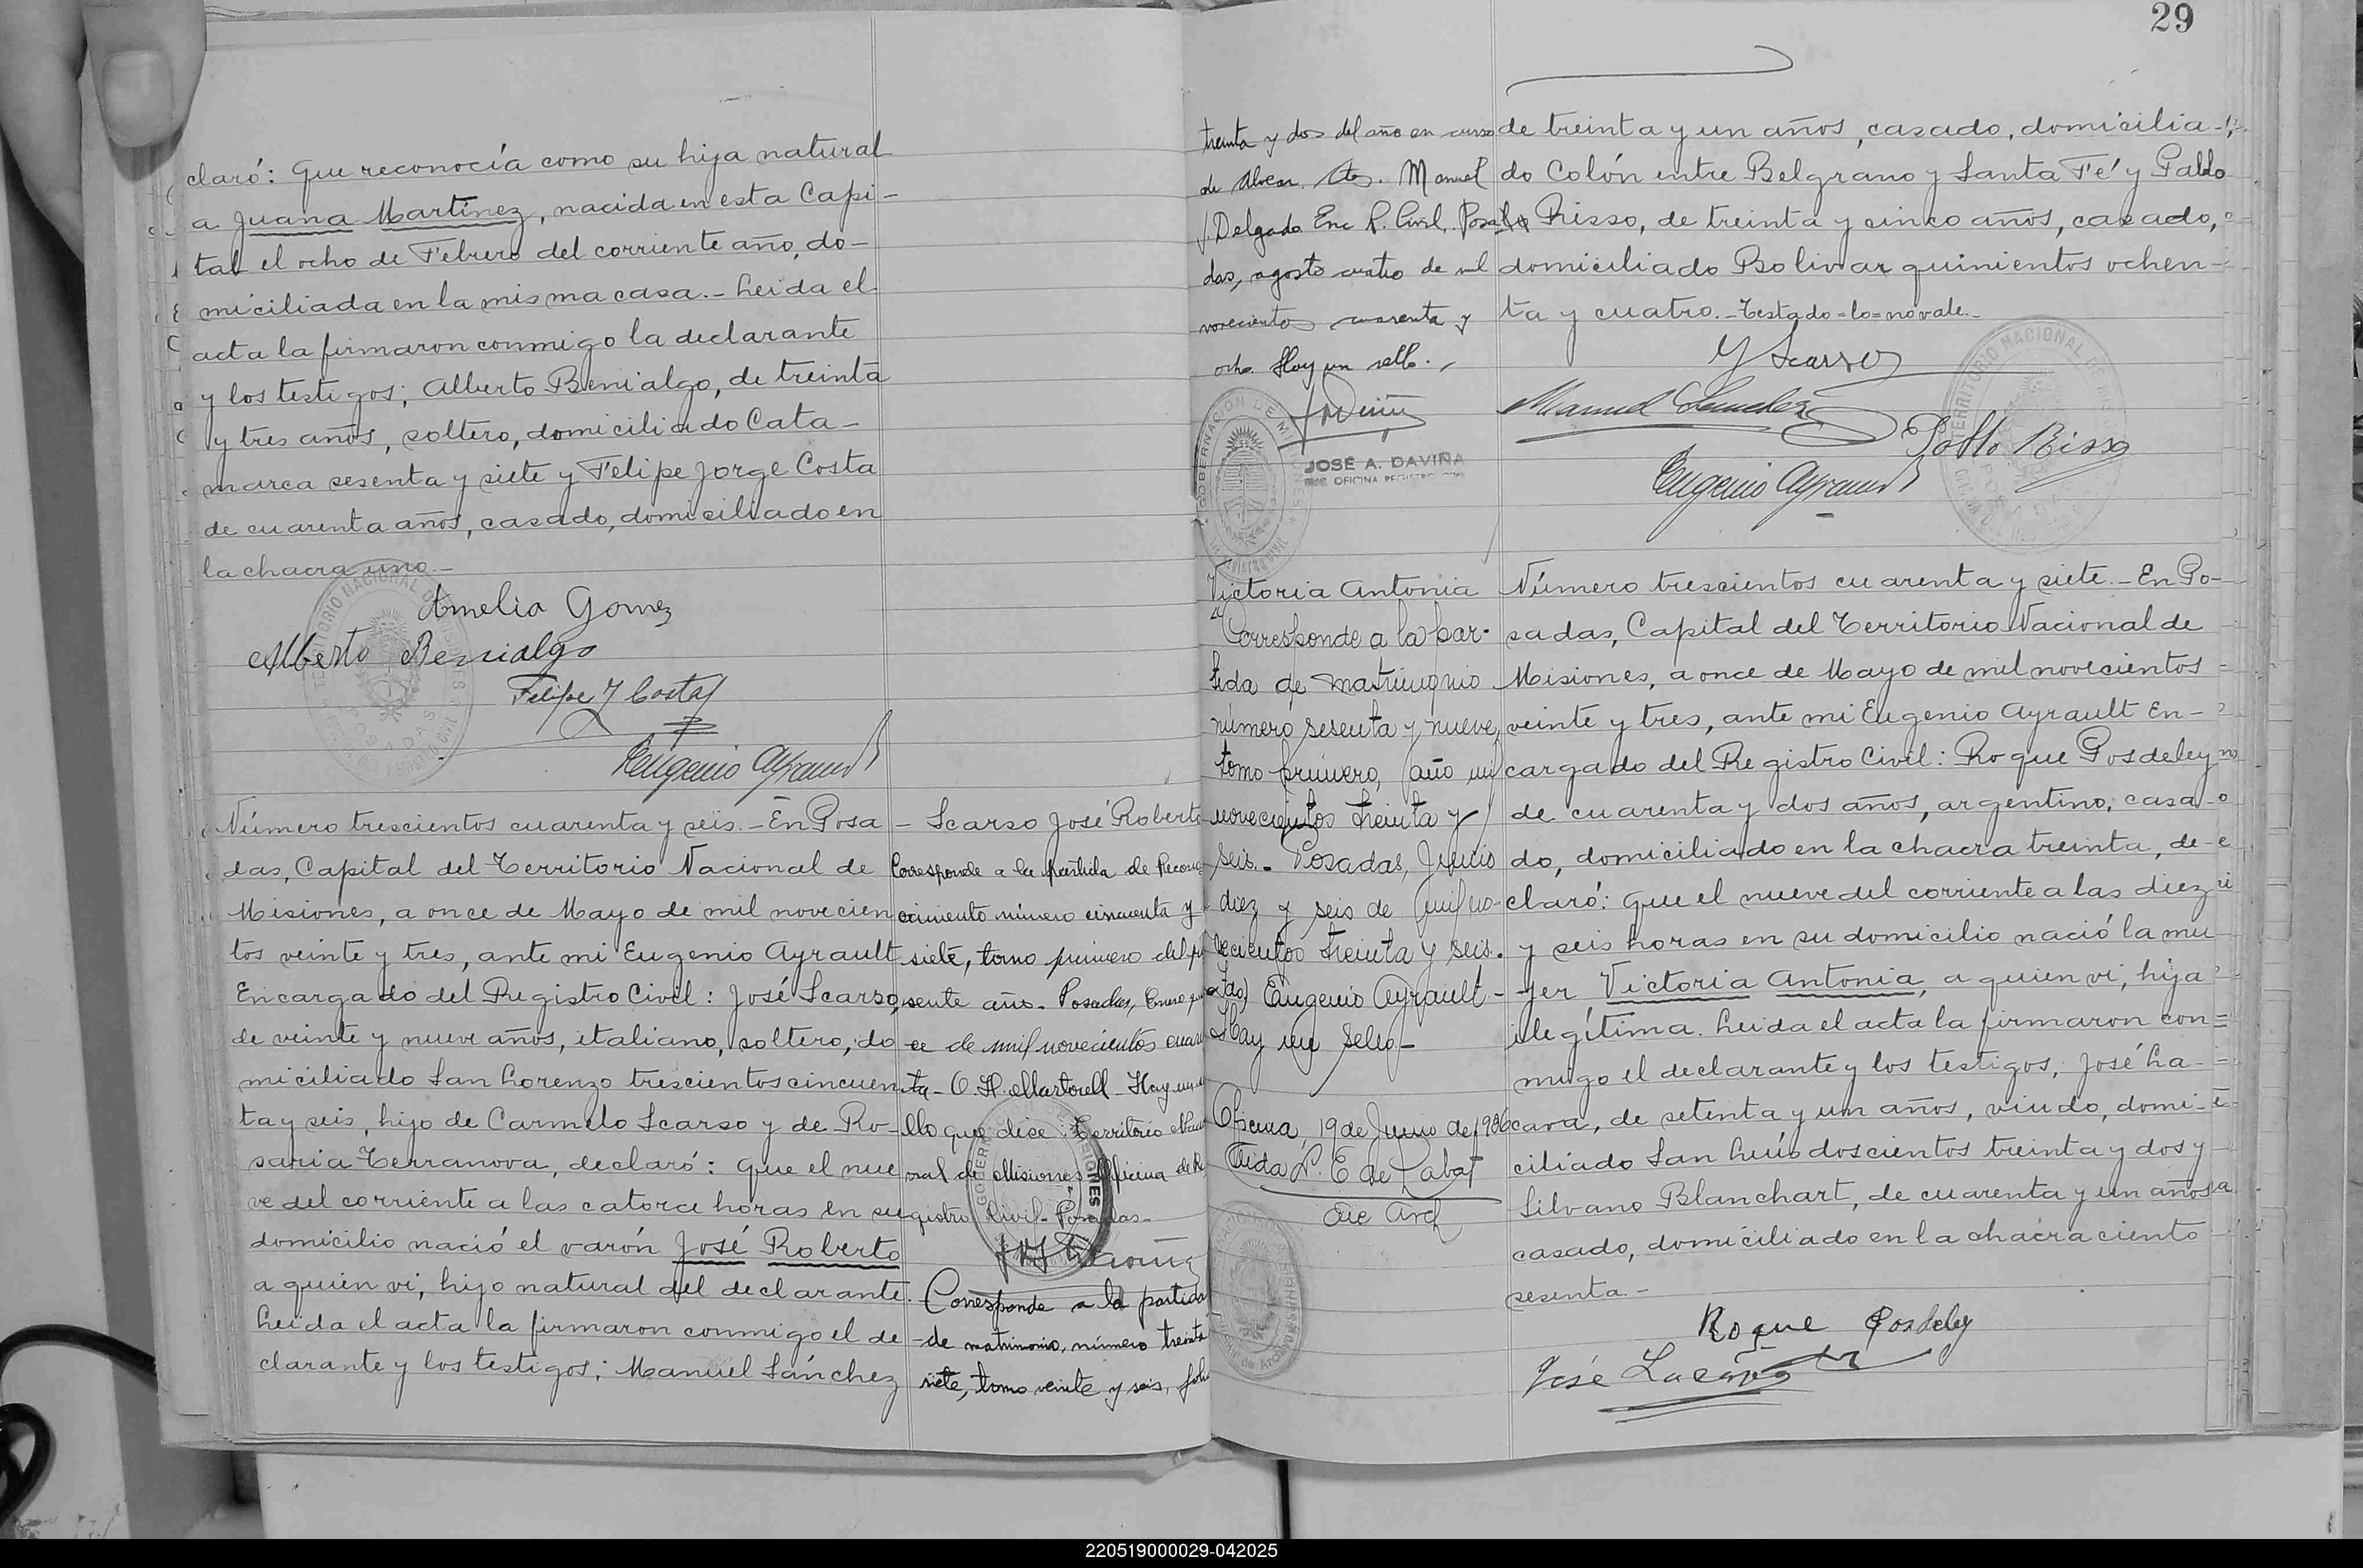 claró: Que reconocía como su hija natural
a Juana Martínez, nacida en esta Capi-
tal el ocho de Febrero del corriente año, do-
miciliada en la misma casa.- Leida el
acta la firmaron conmigo la declarante
y los testigos; Alberto Benialgo, de treinta
y tres años, soltero, domiciliado Cata-
marca sesenta y siete y Felipe Jorge Costa
de cuarenta años, casado, domiciliado en
la chacra uno.-
Amelia Gomez
Alberto Benialgo
Felipe J Costa
Eugenio Ayrault
Número trescientos cuarenta y seis.- En Posa-
das, Capital del Territorio Nacional de
Misiones, a once de Mayo de mil novecien
tos veinte y tres, ante mi Eugenio Ayrault
Encargado del Registro Civil: José Scarso,
de veinte y nueve años, italiano, soltero, do
miciliado San Lorenzo trescientos cincuen
ta y seis, hijo de Carmelo Scarso y de Ro-
saria Terranova, declaró: Que el nue
ve del corriente a las catorce horas en su
domicilio nació el varón José Roberto
a quien vi, hijo natural del declarante.
Leida el acta la firmaron conmigo el de-
clarante y los testigos; Manuel Sánchez
Scarso José Roberto
Corresponde a la partida de Recono
cimiento número cincuenta y
siete, tomo primero del pre
sente año. Posadas, Enero
ce de mil novecientos cuaren
ta - O. H. Martorell - Hay un
llo que dice: Territorio Nacio
nal de Misiones Oficina de Re
gistro Civil - Posadas -
Corresponde a la partida
de matrimonio, número treinta
siete, tomo veinte y seis, folio
29
treinta y dos del año en curso
de Alvear. Manuel
J. Delgado Enc R. Civil, Posa
das, agosto cuatro de mil
novecientos cuarenta y
ocho Hay un sello.
JOSÉ A. DAVIÑA
ENC. OFICINA REGISTRO CIVIL
de treinta y un años, casado, domicilia-
do Colón entre Belgrano y Santa Fé y Pablo
Risso, de treinta y cinco años, casado,
domiciliado Bolivar quinientos ochen-
ta y cuatro.- Testado=lo=no vale.-
J Scarso
Manuel Sanchez
Pablo Risso
Eugenio Ayrault
Victoria Antonia
Corresponde a la par-
tida de matrimonio
número sesenta y nueve,
tomo primero, año mil
novecientos treinta y
seis.- Posadas, Junio
diez y seis de mil no-
vecientos treinta y seis.
Eugenio Ayrault -
Hay un sello -
Oficina, 19 de Junio de 1936
Número trescientos cuarenta y siete.- En Po-
sadas, Capital del Territorio Nacional de
Misiones, a once de Mayo de mil novecientos
veinte y tres, ante mi Eugenio Ayrault En-
cargado del Registro Civil: Roque Posdeley
de cuarenta y dos años, argentino, casa-
do, domiciliado en la chacra treinta, de-
claró: Que el nueve del corriente a las diez
y seis horas en su domicilio nació la mu-
jer Victoria Antonia, a quien vi, hija
ilegítima. Leida el acta la firmaron con
migo el declarante y los testigos; José La-
cava, de setenta y un años, viudo, domi-
ciliado San Luis doscientos treinta y dos y
Silvano Blanchart, de cuarenta y un años
casado, domiciliado en la chacra ciento
sesenta.-
Roque Posdeley
José Lacava
220519000029-042025